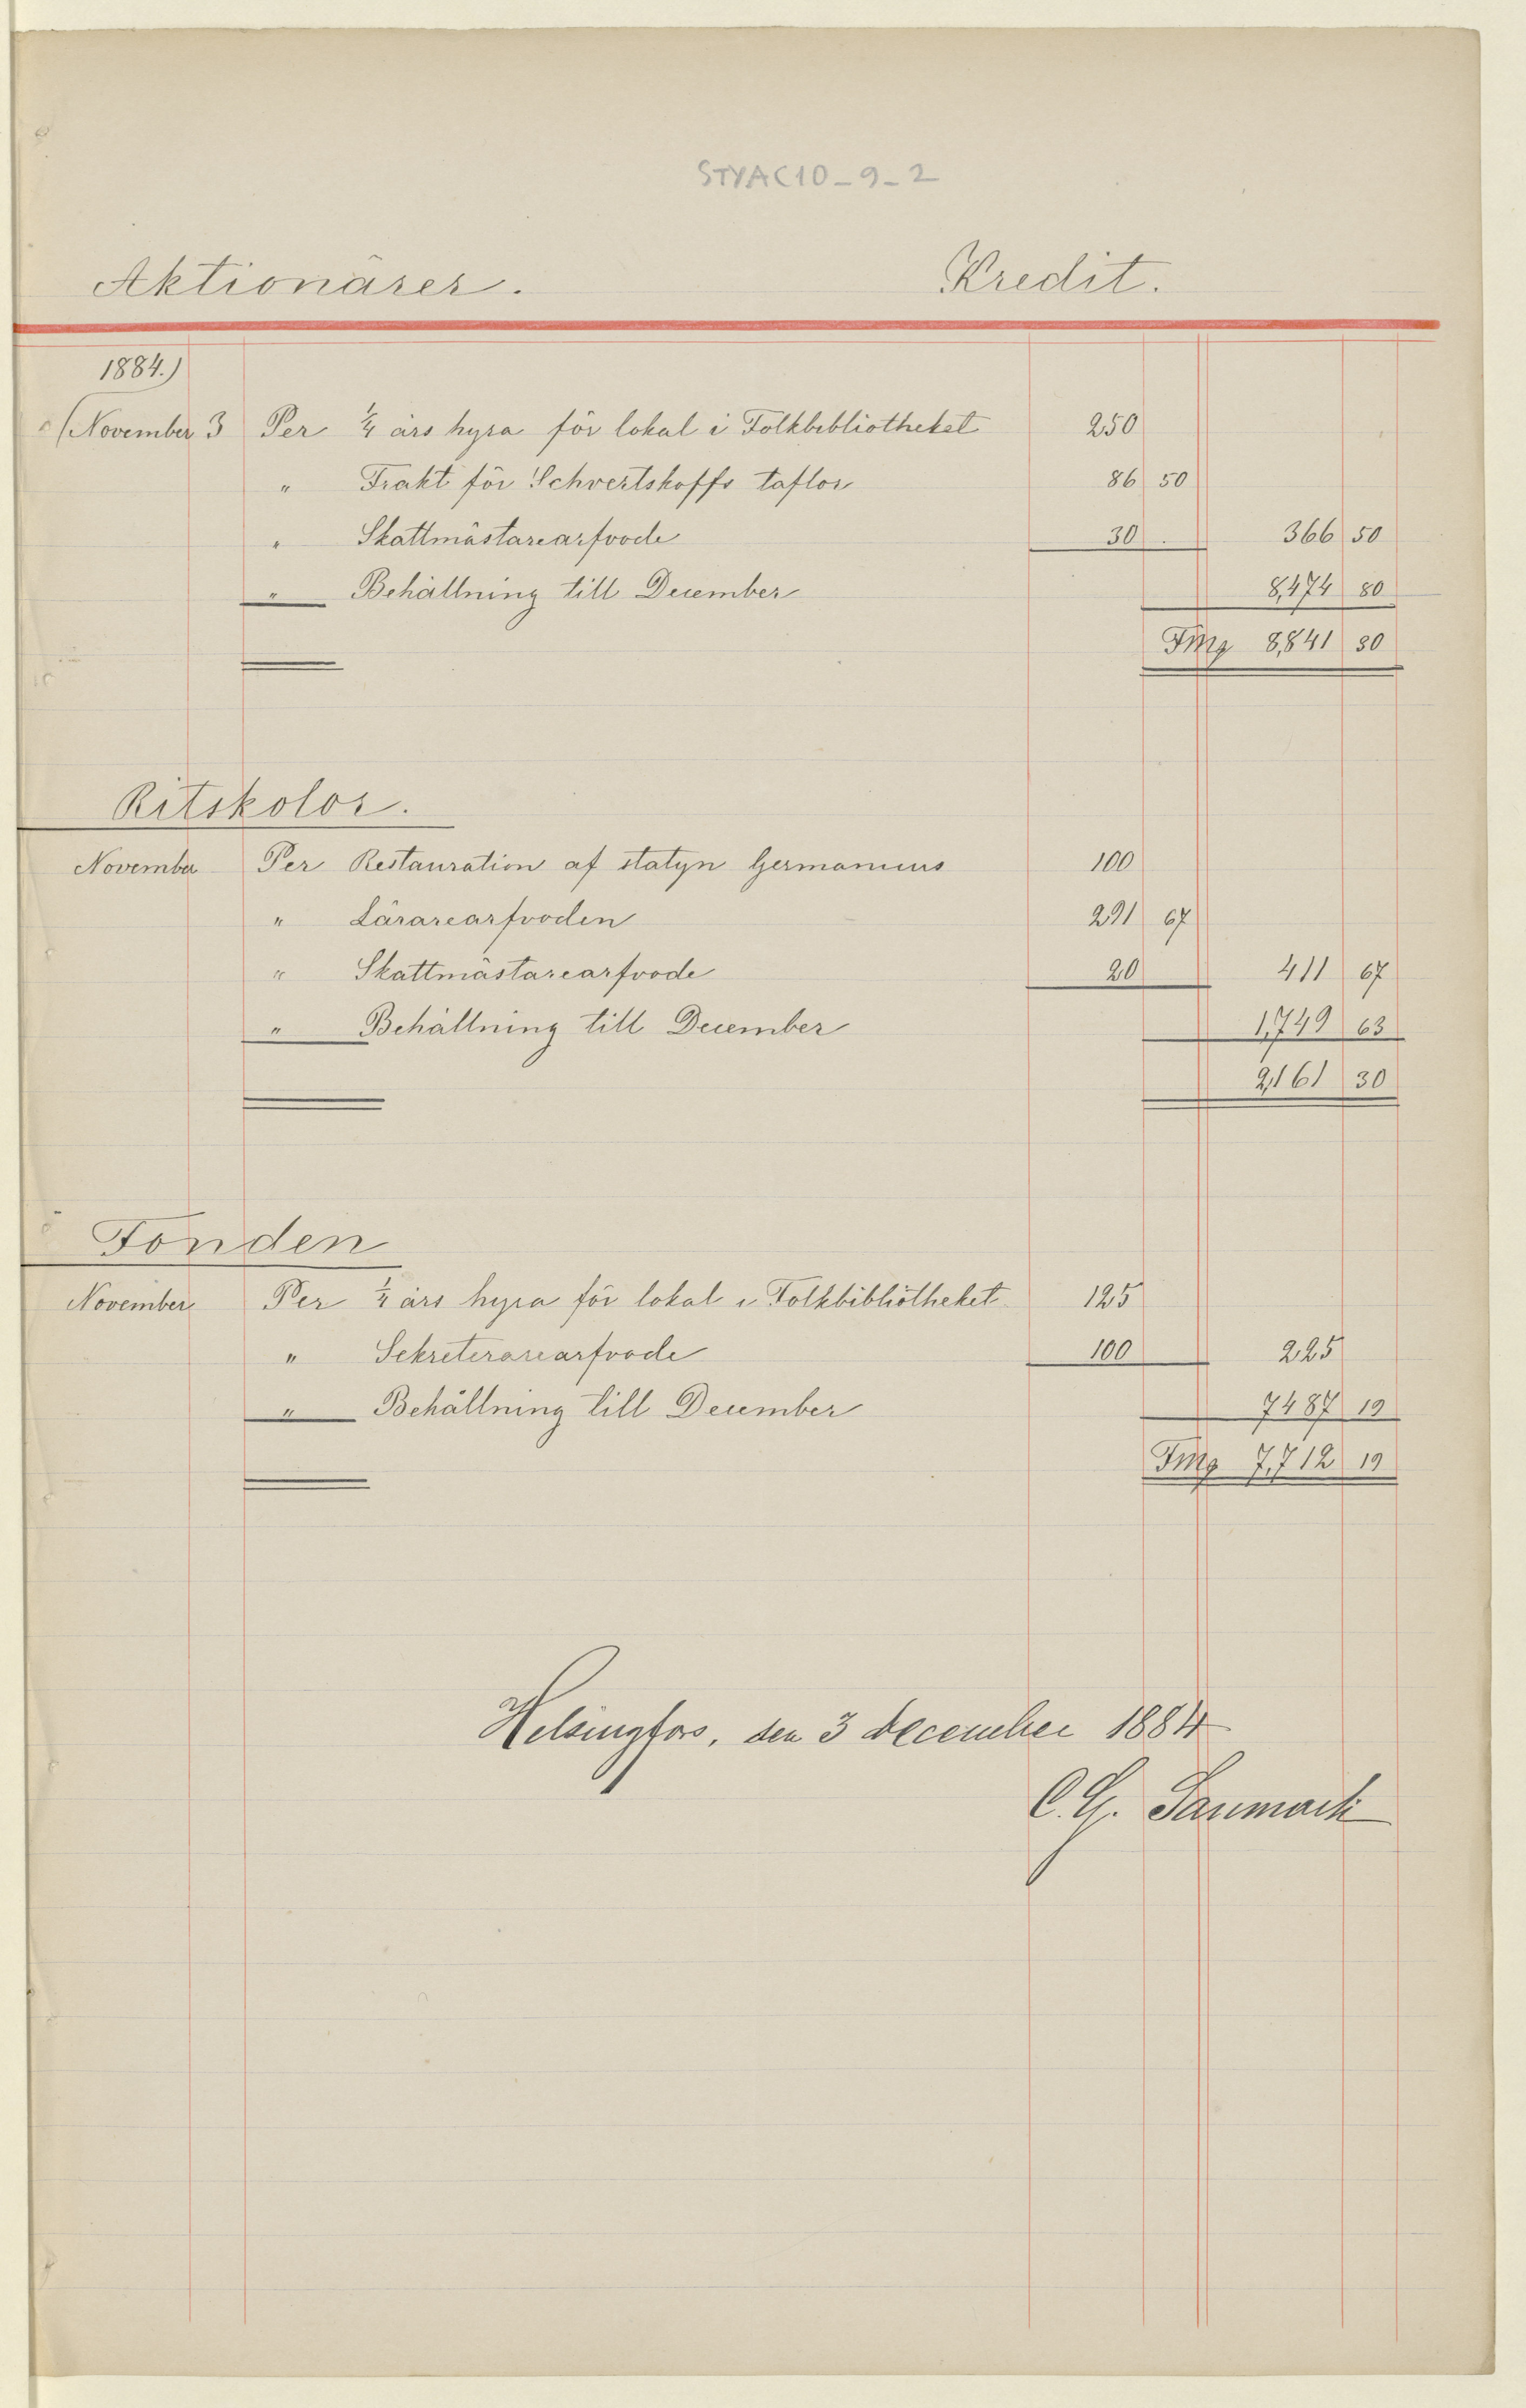 STYAC10_9_2
Aktionärer. Kredit.
1884.)
(November 3 Per 1/4 års hyra för lokal i Folkbibliotheket 250
" Frakt för Schvertskoffs taflor 86 50
" Skattmästarearfvode 30 . 366 50
" Behållning till December 8,474 80
Fmg 8,841 30
Ritskolor.
November Per Restauration af statyn Germanicus 100
" Lärarearfvoden 291 67
" Skattmästarearfvode 20 411 67
" Behållning till December 1,749 63
2,161 30
Fonden
November Per 1/4 års hyra för lokal i Folkbibliotheket 125
" Sekreterarearfvode 100 225
" Behållning till December 7487 19
Fmg 7,712 19
Helsingfors, den 3 December 1884
C. G. Sanmark